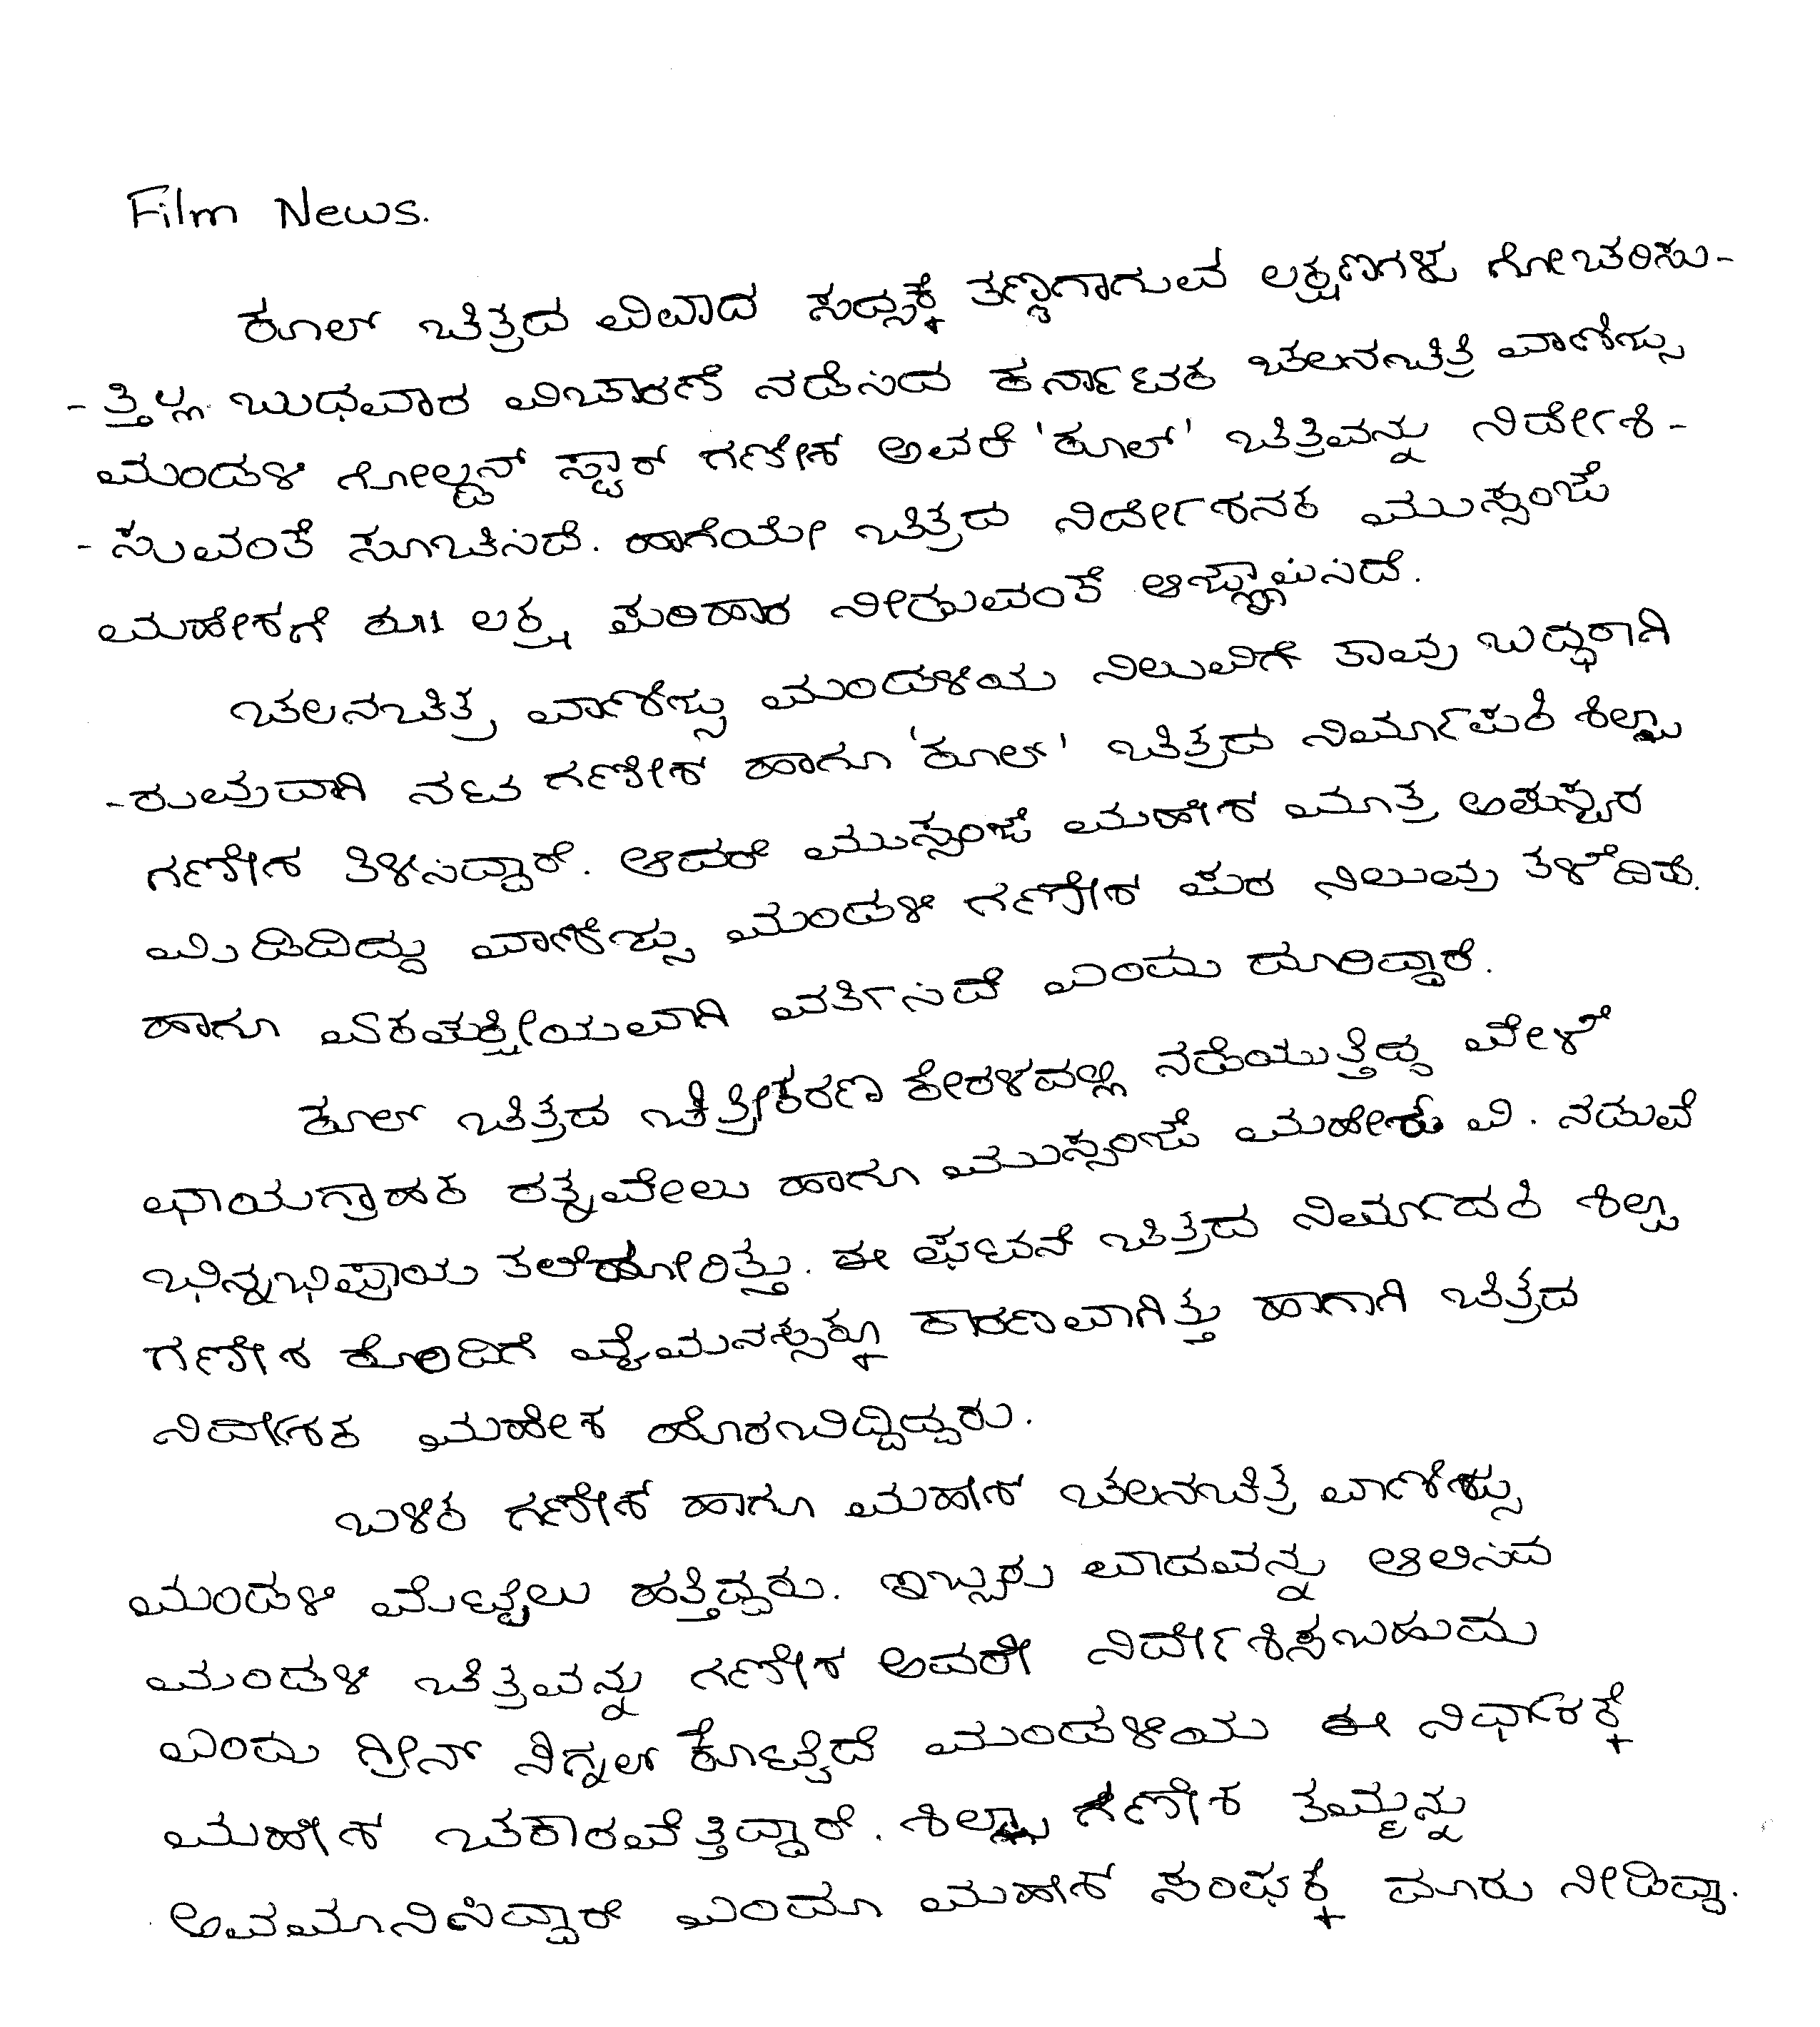 Film News.
ಕೂಲ್ ಚಿತ್ರದ ವಿವಾದ ಸದ್ಯಕ್ಕೆ ತಣ್ಣಗಾಗುವ ಲಕ್ಷಣಗಳು ಗೋಚರಿಸು-
-ತ್ತಿಲ್ಲ. ಬುಧವಾರ ವಿಚಾರಣೆ ನಡೆಸಿದ ಕರ್ನಾಟಕ ಚಲನಚಿತ್ರ ವಾಣಿಜ್ಯ
ಮಂಡಳಿ ಗೋಲ್ಡನ್ ಸ್ಟಾರ್ ಗಣೇಶ್ ಅವರೆ 'ಕೂಲ್' ಚಿತ್ರವನ್ನು ನಿರ್ದೇಶಿ-
-ಸುವಂತೆ ಸೂಚಿಸಿದೆ. ಹಾಗೆಯೇ ಚಿತ್ರದ ನಿರ್ದೇಶನಕ ಮುಸ್ಸಂಜೆ
ಮಹೇಶಗೆ ರೂ ಲಕ್ಷ ಪರಿಹಾರ ನೀಡುವಂತೆ ಆಜ್ಞಾಪಿಸಿದೆ.
ಚಲನಚಿತ್ರ ವಾಣಿಜ್ಯ ಮಂಡಳಿಯ ನಿಲುವಿಗೆ ತಾವು ಬದ್ಧರಾಗಿ
-ರುವುದಾಗಿ ನಟ ಗಣೇಶ್ ಹಾಗೂ 'ಕೂಲ್' ಚಿತ್ರದ ನಿರ್ಮಾಪಕಿ ಶಿಲ್ಪಾ
ಗಣೇಶ ತಿಳಿಸಿದ್ದಾರೆ. ಆದರೆ ಮುಸ್ಸಂಜೆ ಮಹೇಶ ಮಾತ್ರ ಅಪಸ್ವರ
ಮಿಡಿದಿದ್ದು ವಾಣಿಜ್ಯ ಮಂಡಳಿ ಗಣೇಶ ಪರ ನಿಲುವು ತಳೆದಿದೆ.
ಹಾಗೂ ಏಕಪಕ್ಷೀಯವಾಗಿ ವರ್ತಿಸಿದೆ ಎಂದು ದೂರಿದ್ದಾರೆ.
ಕೂಲ್ ಚಿತ್ರದ ಚಿತ್ರೀಕರಣ ಕೇರಳದಲ್ಲಿ ನಡೆಯುತ್ತಿದ್ದ ವೇಳೆ
ಛಾಯಗ್ರಾಹಕ ರತ್ನವೇಲು ಹಾಗೂ ಮುಸ್ಸಂಜೆ ಮಹೇಶ ವಿ. ನಡುವೆ
ಭಿನ್ನಭಿಪ್ರಾಯ ತಲೆದೋರಿತ್ತು. ಈ ಘಟನೆ ಚಿತ್ರದ ನಿರ್ಮಾಪಕಿ ಶಿಲ್ಪ
ಗಣೇಶ ರೊಂದಿಗೆ ವೈಮನಸ್ಸಕ್ಕೂ ಕಾರಣವಾಗಿತ್ತು ಹಾಗಾಗಿ ಚಿತ್ರದ
ನಿರ್ದೇಶಕ ಮಹೇಶ ಹೊರಬಿದ್ದಿದ್ದರು.
ಬಳಿಕ ಗಣೇಶ್ ಹಾಗೂ ಮಹೇಶ್ ಚಲನಚಿತ್ರ ವಾಣಿಜ್ಯ
ಮಂಡಳಿ ಮೆಟ್ಟಿಲು ಹತ್ತಿದ್ದರು. ಇಬ್ಬರು ವಾದವನ್ನು ಆಲಿಸಿದ
ಮಂಡಳಿ ಚಿತ್ರವನ್ನು ಗಣೇಶ ಅವರೇ ನಿರ್ದೇಶಿಸಬಹುದು
ಎಂದು ಗ್ರೀನ್ ಸಿಗ್ನಲ್ ಕೊಟ್ಟಿದೆ ಮಂಡಳಿಯ ಈ ನಿರ್ಧಾರಕ್ಕೆ
ಮಹೇಶ್ ಚಕಾರವೆತ್ತಿದ್ದಾರೆ. ಶಿಲ್ಪಾ ಗಣೇಶ ತಮ್ಮನ್ನು
ಅವಮಾನಿಸಿದ್ದಾರೆ ಎಂದೂ ಮಹೇಶ್ ಸಂಘಕ್ಕೆ ದೂರು ನೀಡಿದ್ದಾ.